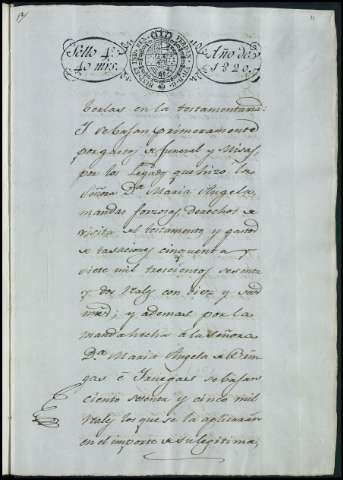 Sello 4º
40 mrs.
Año de
1820.
en la testamentaria:
Y se bajan primeramente
por gastos de funeral y Misas,
por los Legados que hizo la
Señora Dª Maria Angela,
mandas forzosas, derechos de
visita de testamento, y gastos
de tasaciones cinquenta y
siete mil trescientos sesenta
y dos rraly con diez y seis
mrd; y ademas por la
manda hecha á la Señora
Dª Maria Angela de
é se bajan
ciento setenta y cinco mil
rraly los que se la aplicarán
en el importe de su legitima,